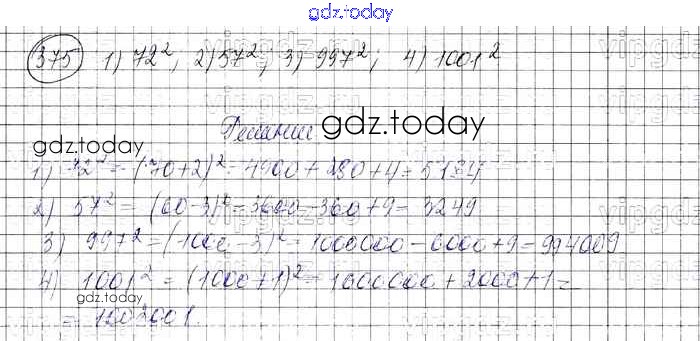 gdz.today
375 1) 72², 2) 57², 3) 997²; 4) 1001²
Решение gdz.today
gdz.today
1) 72² = (70+2)² = 4900 + 280 + 4 = 5184
2) 57² = (60-3)² = 3600 - 360 + 9 = 3249
3) 997² = (1000 - 3)² = 1000000 - 6000 + 9 = 994009
4) 1001² = (1000 + 1)² = 1000000 + 2000 + 1 =
gdz.today
= 1002001.